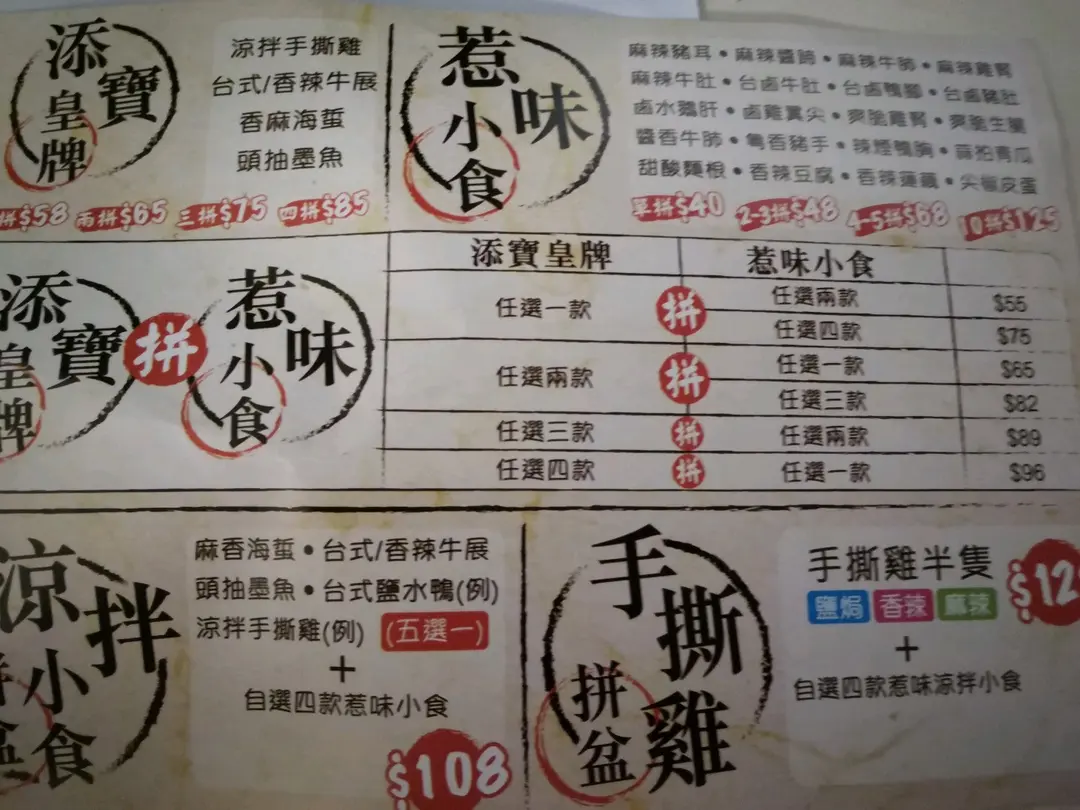 添寶皇牌
涼拌手撕雞
台式/香辣牛展
香麻海蜇
頭抽墨魚
拼$58 兩拼$65 三拼$75 四拼$85
惹味小食
麻辣豬耳•麻辣醬蹄•麻辣牛肺•麻辣雞腎
麻辣牛肚•台鹵牛肚•台鹵鴨腳•台鹵豬肚
鹵水鵝肝•鹵雞翼尖•爽脆雞腎•爽脆生腸
醬香牛肺•粵香豬手•辣煙鴨胸•蒜拍青瓜
甜酸麵根•香辣豆腐•香辣蓮藕•尖椒皮蛋
單拼$40 2-3拼$48 4-5拼$68 10拼$125
添寶皇牌 拼 惹味小食
添寶皇牌 惹味小食
任選一款 拼 任選兩款 $55
任選四款 $75
任選兩款 拼 任選一款 $65
任選三款 $82
任選三款 拼 任選兩款 $89
任選四款 拼 任選一款 $96
涼拌小食拼盆
麻香海蜇•台式/香辣牛展
頭抽墨魚•台式鹽水鴨(例)
涼拌手撕雞(例) (五選一)
+
自選四款惹味小食
$108
手撕雞拼盆
手撕雞半隻
鹽焗 香辣 麻辣
+
自選四款惹味涼拌小食
$12